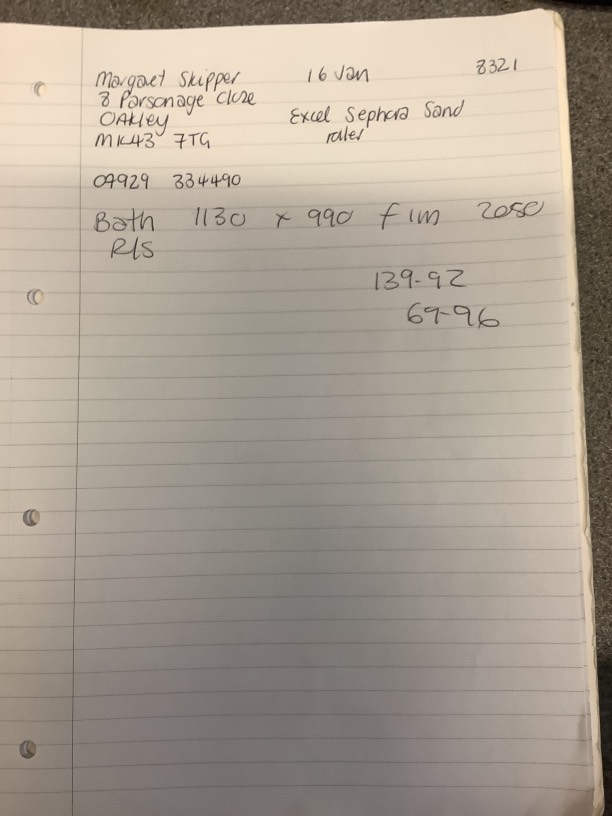 Margaret Skipper 16 Jan 8321
8 Parsonage Close
OAKley Excel Sephora Sand
MK43 7TG roller
07929 334490
Bath 1130 x 990 fim 2050
R/S
139-92
69-96